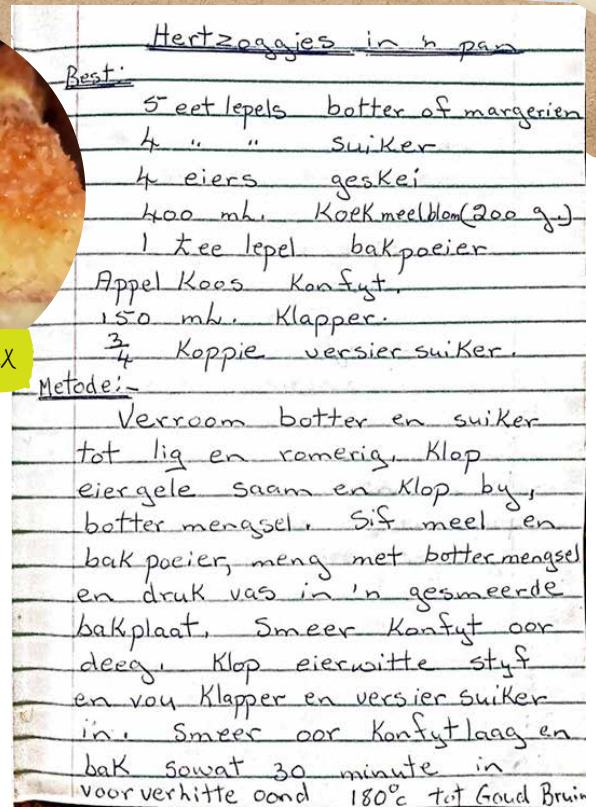 Hertzoggies in 'n pan
Best:
5 eetlepels botter of margerien
4 " " suiker
4 eiers geskei
400 ml. Koekmeelblom (200 g.)
1 tee lepel bakpoeier
Appel Koos Konfyt.
150 ml. Klapper.
3/4 Koppie versier suiker.
Metode:-
Verroom botter en suiker
tot lig en romerig. Klop
eiergele saam en Klop by,
botter mengsel. Sif meel en
bak poeier, meng met bottermengsel
en druk vas in 'n gesmeerde
bakplaat. Smeer Konfyt oor
deeg. Klop eierwitte styf
en vou Klapper en versier suiker
in. Smeer oor Konfytlaag en
bak sowat 30 minute in
voorverhitte oond 180°c tot Goud Bruin
X